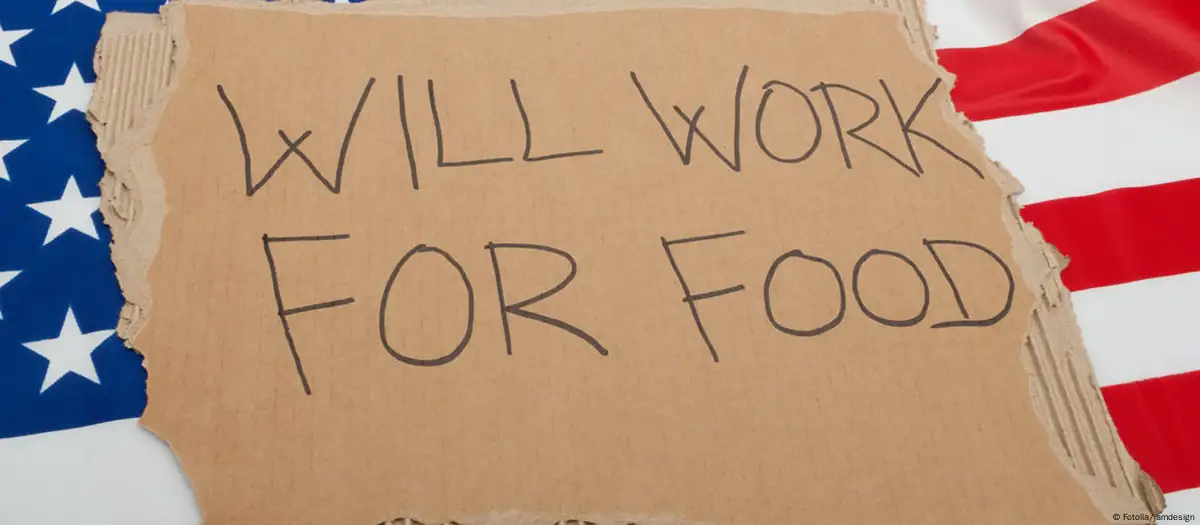 WILL WORK
FOR FOOD
© Fotolia/jamdesign